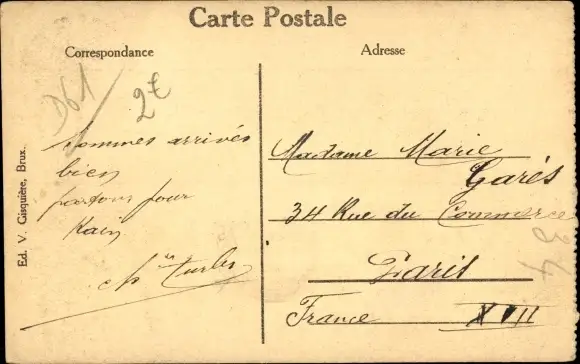 Carte Postale
Correspondance
Adresse
D61
2€
sommes arrivés
bien
partons pour
Kain
Ed. V. Gisquière, Brux.
Madame Marie
Garés
34 Rue du Commerce
Paris
France XVII
34